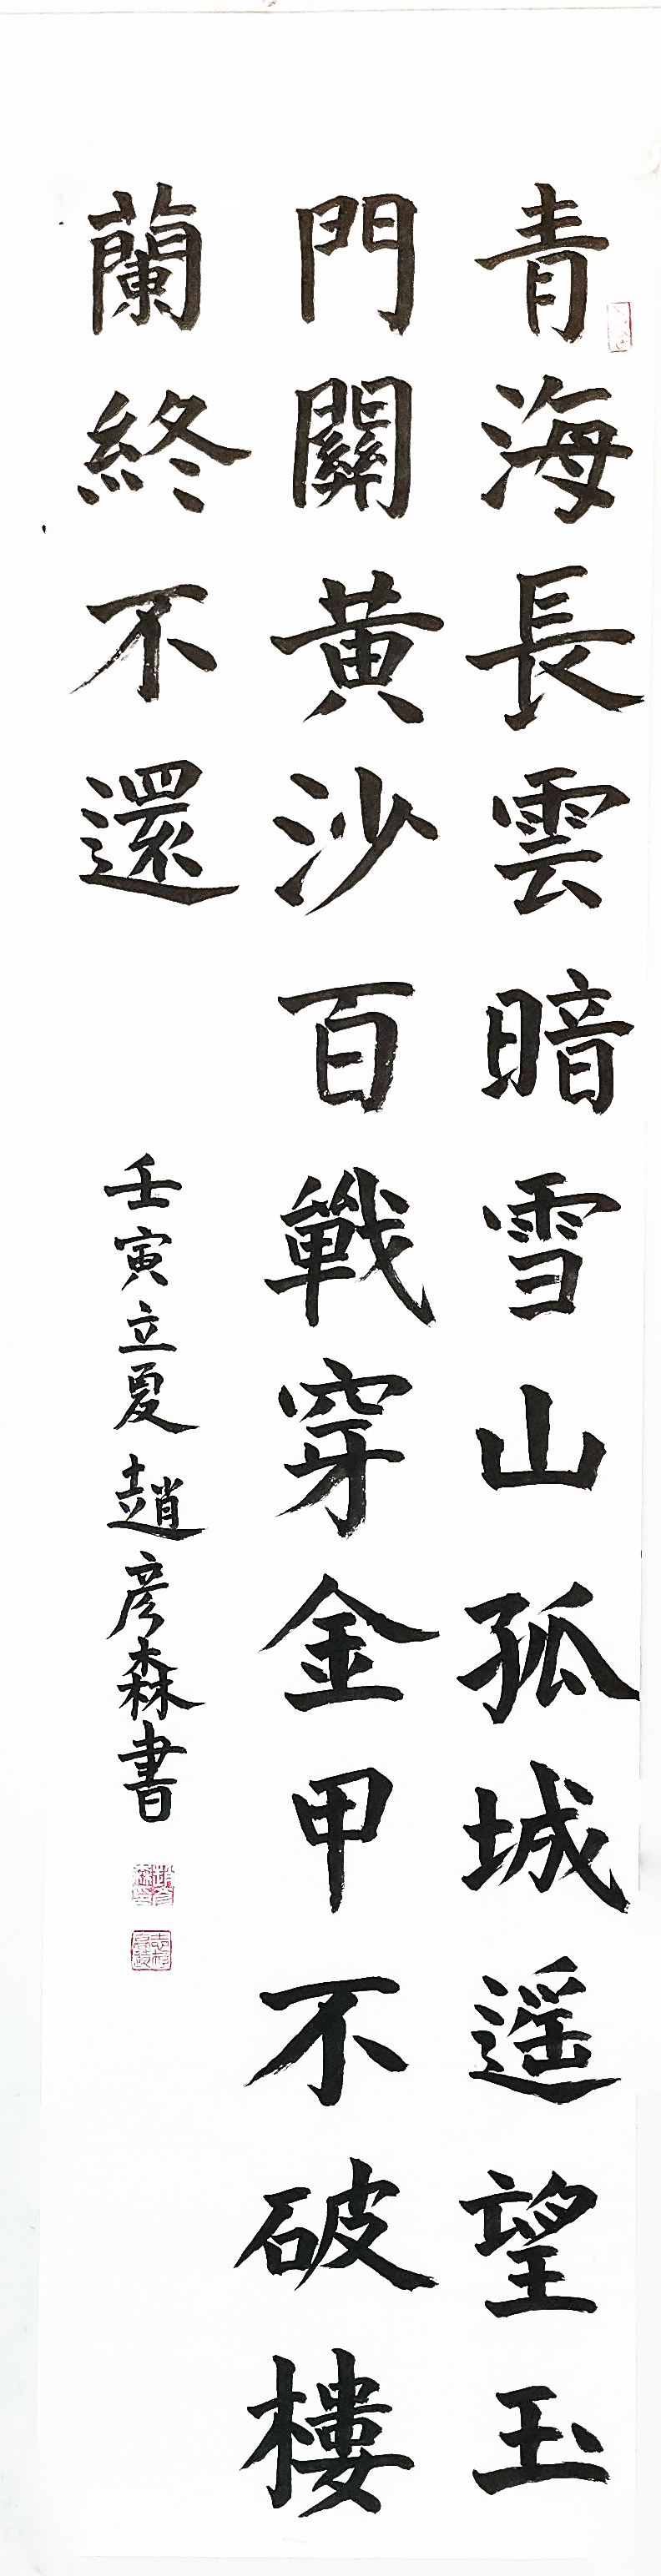 青海長雲暗雪山孤城遥望玉
門關黄沙百戰穿金甲不破樓
蘭終不還
壬寅立夏趙彦森書